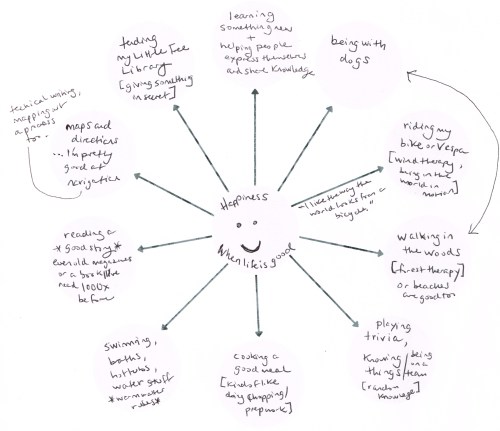 learning
something new
+
helping people
express themselves
and share knowledge
being with
dogs
riding my
bike or Vespa
[wind therapy,
being in the
world in
motion]
"I like the way the
world looks from a
bicycle."
walking in
the woods
[forest therapy]
or beaches
are good too
playing
trivia,
knowing
things /
being
on a
team
[random
knowledge]
cooking a
good meal
[kind of like
day shopping/
prep work]
swimming,
baths,
hot tubs,
water stuff
*warm water
rules*
reading a
*good story*
even old magazines
or a book I've
read 1000x
before
maps and
directions
... I'm pretty
good at
navigation
technical writing,
mapping out
a process
too...
tending
my Little Free
Library
[giving something
in secret]
Happiness
When life is good